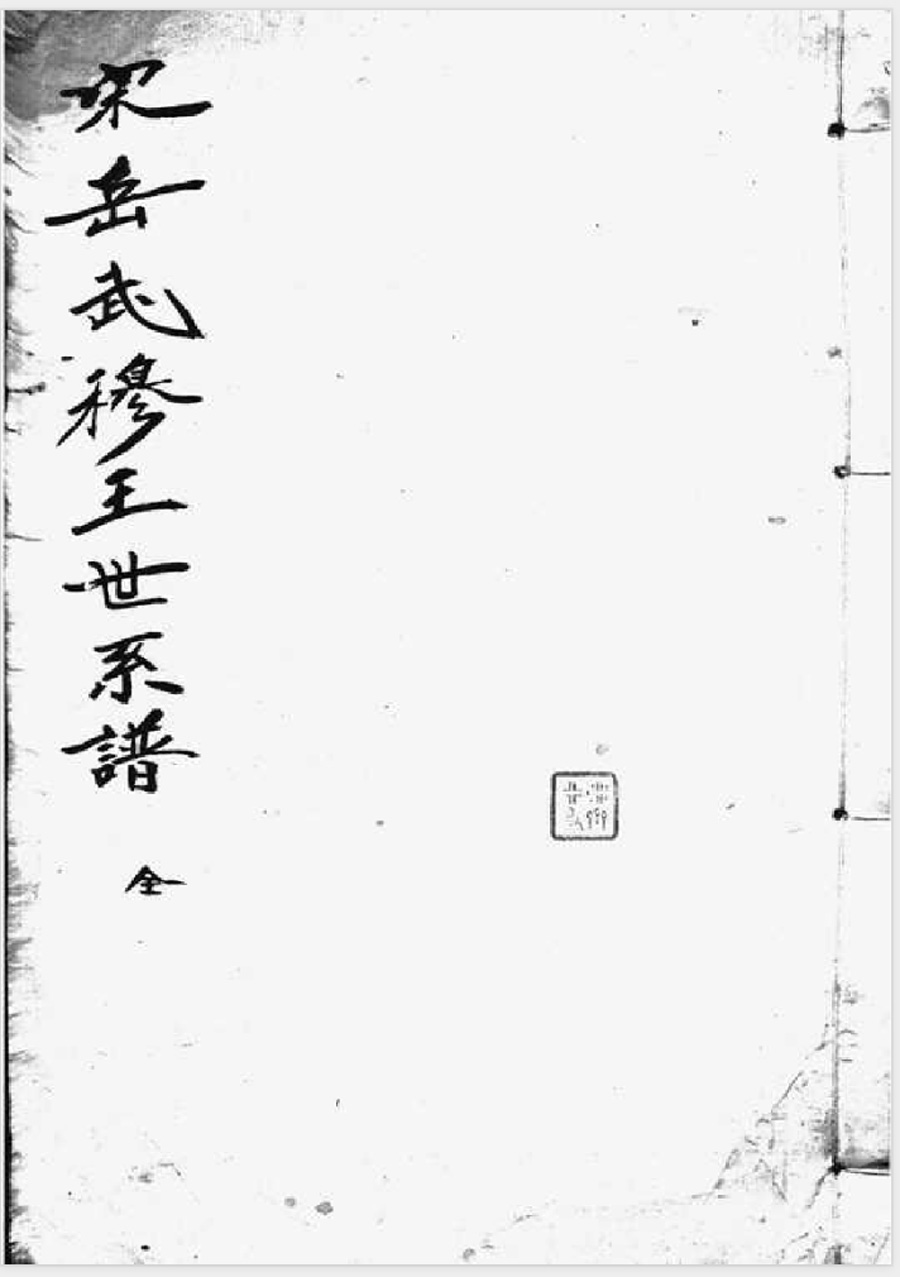 宋岳武穆王世系譜 全